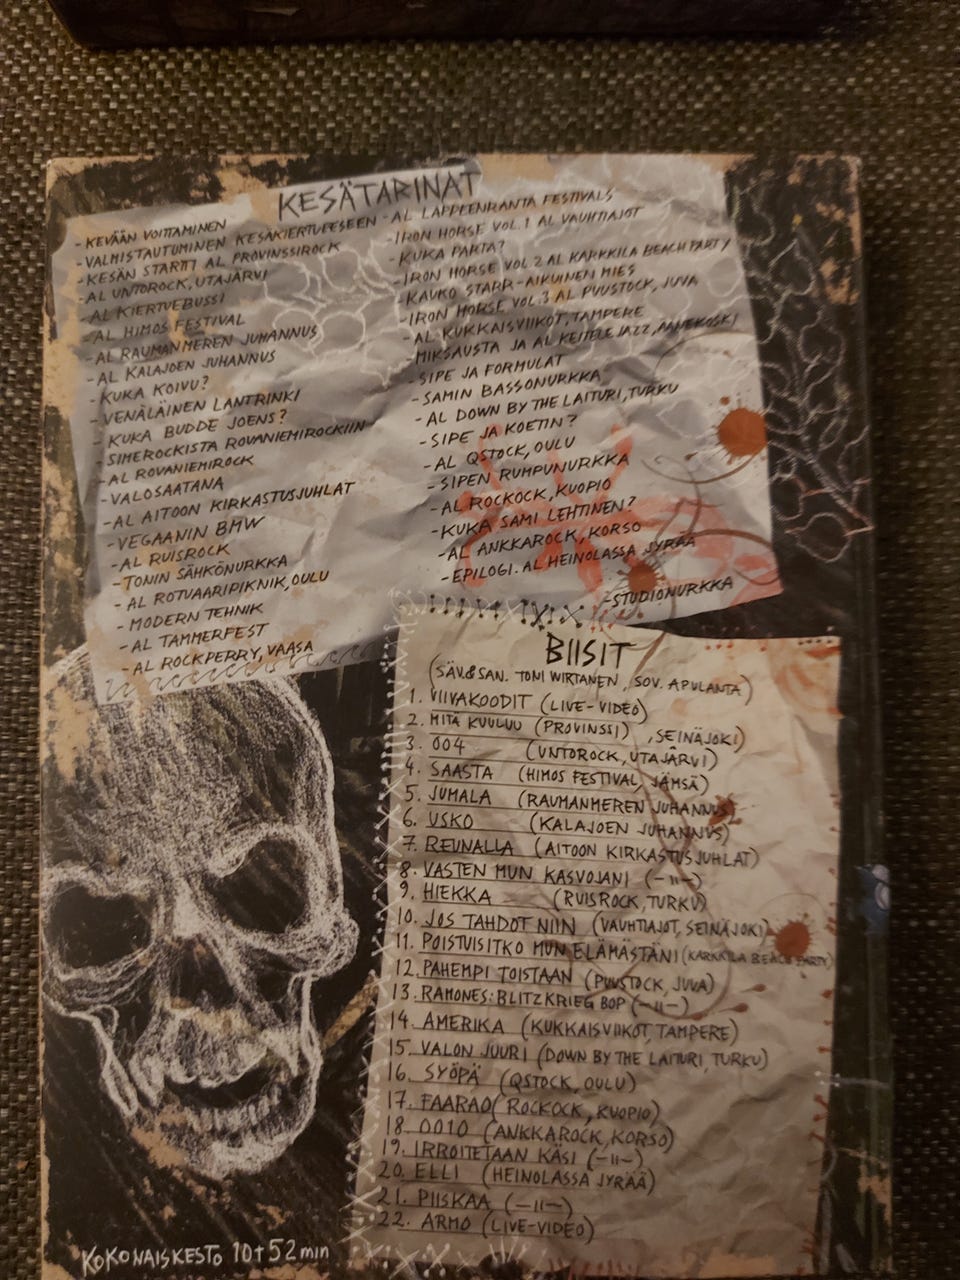 KESÄTARINAT
- KEVÄÄN VOITTAMINEN
- VALMISTAUTUMINEN KESÄKIERTUEESEEN
- KESÄN STARTTI AL PROVINSSIROCK
- AL UNTOROCK, UTAJÄRVI
- AL KIERTUEBUSSI
- AL HIMOS FESTIVAL
- AL RAUMANMEREN JUHANNUS
- AL KALAJOEN JUHANNUS
- KUKA KOIVU?
- VENÄLÄINEN LANTRINKI
- KUKA BUDDE JOENS?
- SIMEROCKISTA ROVANIEMIROCKIIN
- AL ROVANIEMIROCK
- VALOSAATANA
- AL AITOON KIRKASTUSJUHLAT
- VEGAANIN BMW
- AL RUISROCK
- TONIN SÄHKÖNURKKA
- AL ROTUAARIPIKNIK, OULU
- MODERN TEHNIK
- AL TAMMERFEST
- AL ROCKPERRY, VAASA
- AL LAPPEENRANTA FESTIVALS
- IRON HORSE VOL. 1 AL VAUHTIAJOT
- KUKA PARTA?
- IRON HORSE VOL 2 AL KARKKILA BEACH PARTY
- KAUKO STARR - AIKUINEN MIES
- IRON HORSE VOL. 3 AL PUUSTOCK, JUVA
- AL KUKKAISVIIKOT, TAMPERE
- MIKSAUSTA JA AL KEITELE JAZZ, ÄÄNEKOSKI
- SIPE JA FORMULAT
- SAMIN BASSONURKKA
- AL DOWN BY THE LAITURI, TURKU
- SIPE JA KOETIN?
- AL QSTOCK, OULU
- SIPEN RUMPUNURKKA
- AL ROCKOCK, KUOPIO
- KUKA SAMI LEHTINEN?
- AL ANKKAROCK, KORSO
- EPILOGI. AL HEINOLASSA JYRÄÄ
- STUDIONURKKA
BIISIT
(SÄV.&SAN. TONI WIRTANEN, SOV. APULANTA)
1. VIIVAKOODIT (LIVE-VIDEO)
2. MITÄ KUULUU (PROVINSSI), SEINÄJOKI)
3. 004 (UNTOROCK, UTAJÄRVI)
4. SAASTA (HIMOS FESTIVAL, JÄMSÄ)
5. JUMALA (RAUMANMEREN JUHANNUS)
6. USKO (KALAJOEN JUHANNUS)
7. REUNALLA (AITOON KIRKASTUSJUHLAT)
8. VASTEN MUN KASVOJANI (-II-)
9. HIEKKA (RUISROCK, TURKU)
10. JOS TAHDOT NIIN (VAUHTIAJOT, SEINÄJOKI)
11. POISTUISITKO MUN ELÄMÄSTÄNI (KARKKILA BEACH PARTY)
12. PAHEMPI TOISTAAN (PUUSTOCK, JUVA)
13. RAMONES: BLITZKRIEG BOP (-II-)
14. AMERIKA (KUKKAISVIIKOT, TAMPERE)
15. VALON JUURI (DOWN BY THE LAITURI, TURKU)
16. SYÖPÄ (QSTOCK, OULU)
17. FAARAO (ROCKOCK, KUOPIO)
18. 0010 (ANKKAROCK, KORSO)
19. IRROITETAAN KÄSI (-II-)
20. ELLI (HEINOLASSA JYRÄÄ)
21. PIISKAA (-II-)
22. ARMO (LIVE-VIDEO)
KOKONAISKESTO 10t 52min